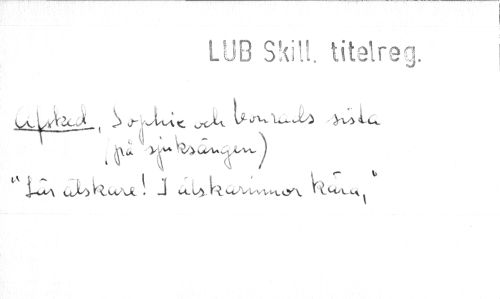 LUB Skill. titelreg.
Afsked, Sophie och Conrads sista
(på sjuksängen)
"Lär älskare! I älskarinnor kära,"